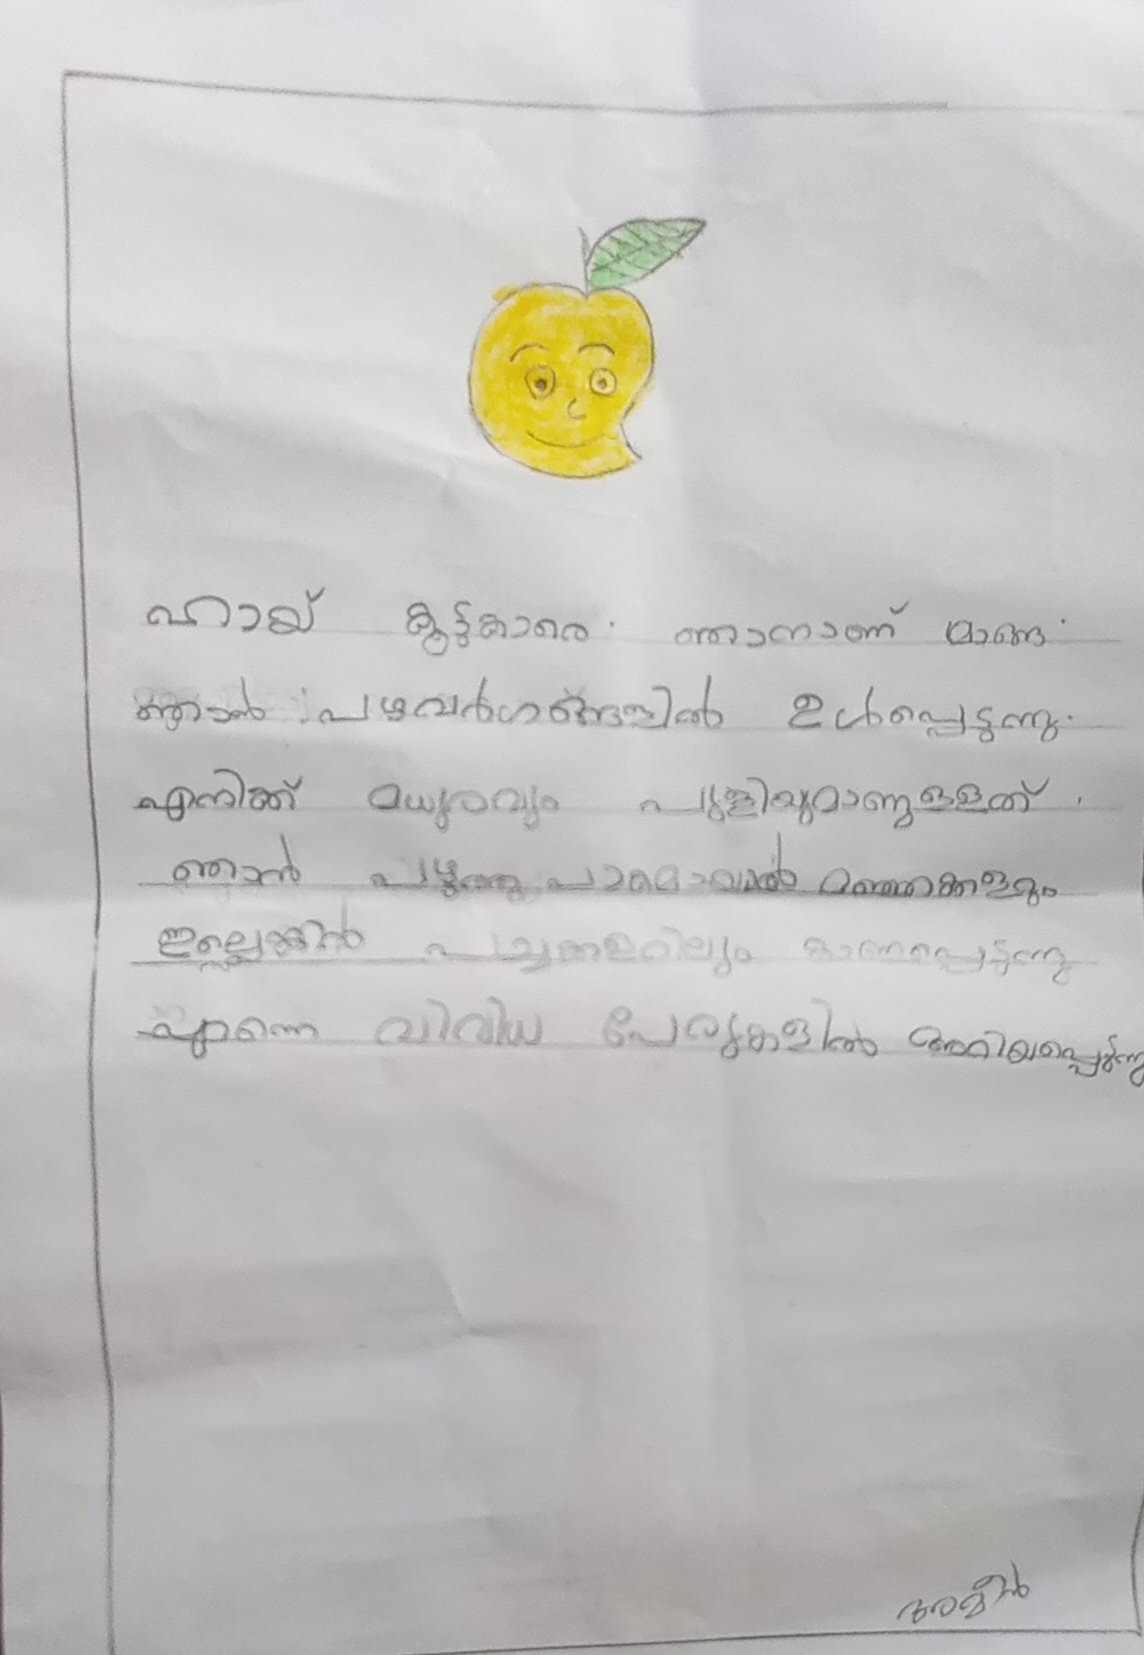 ഹായ് കൂട്ടുകാരെ. ഞാനാണ് മാങ്ങ.
ഞാൻ പഴവർഗങ്ങളിൽ ഉൾപ്പെടുന്നു.
എനിക്ക് മധുരവും പുളിയുമാണുള്ളത്.
ഞാൻ പഴുത്തു പാകമായാൽ മഞ്ഞക്കളറും
ഇല്ലെങ്കിൽ പച്ചക്കളറിലും കാണപ്പെടുന്നു
എന്നെ വിവിധ പേരുകളിൽ അറിയപ്പെടുന്നു